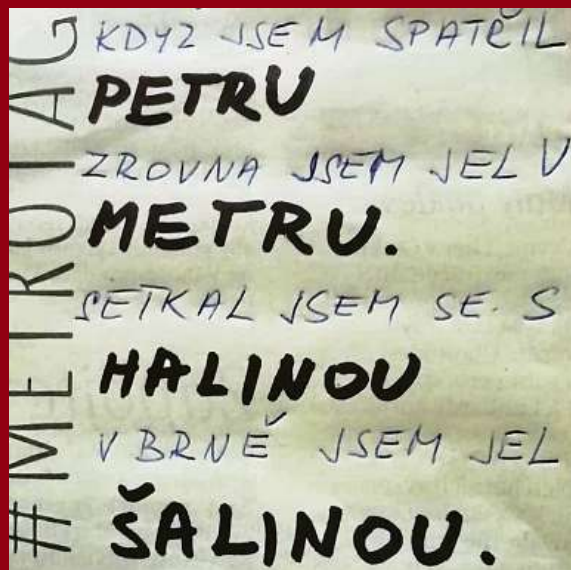 #METROTAG
KDYŽ JSEM SPATŘIL
PETRU
ZROVNA JSEM JEL V
METRU.
SETKAL JSEM SE S
HALINOU
V BRNĚ JSEM JEL
ŠALINOU.